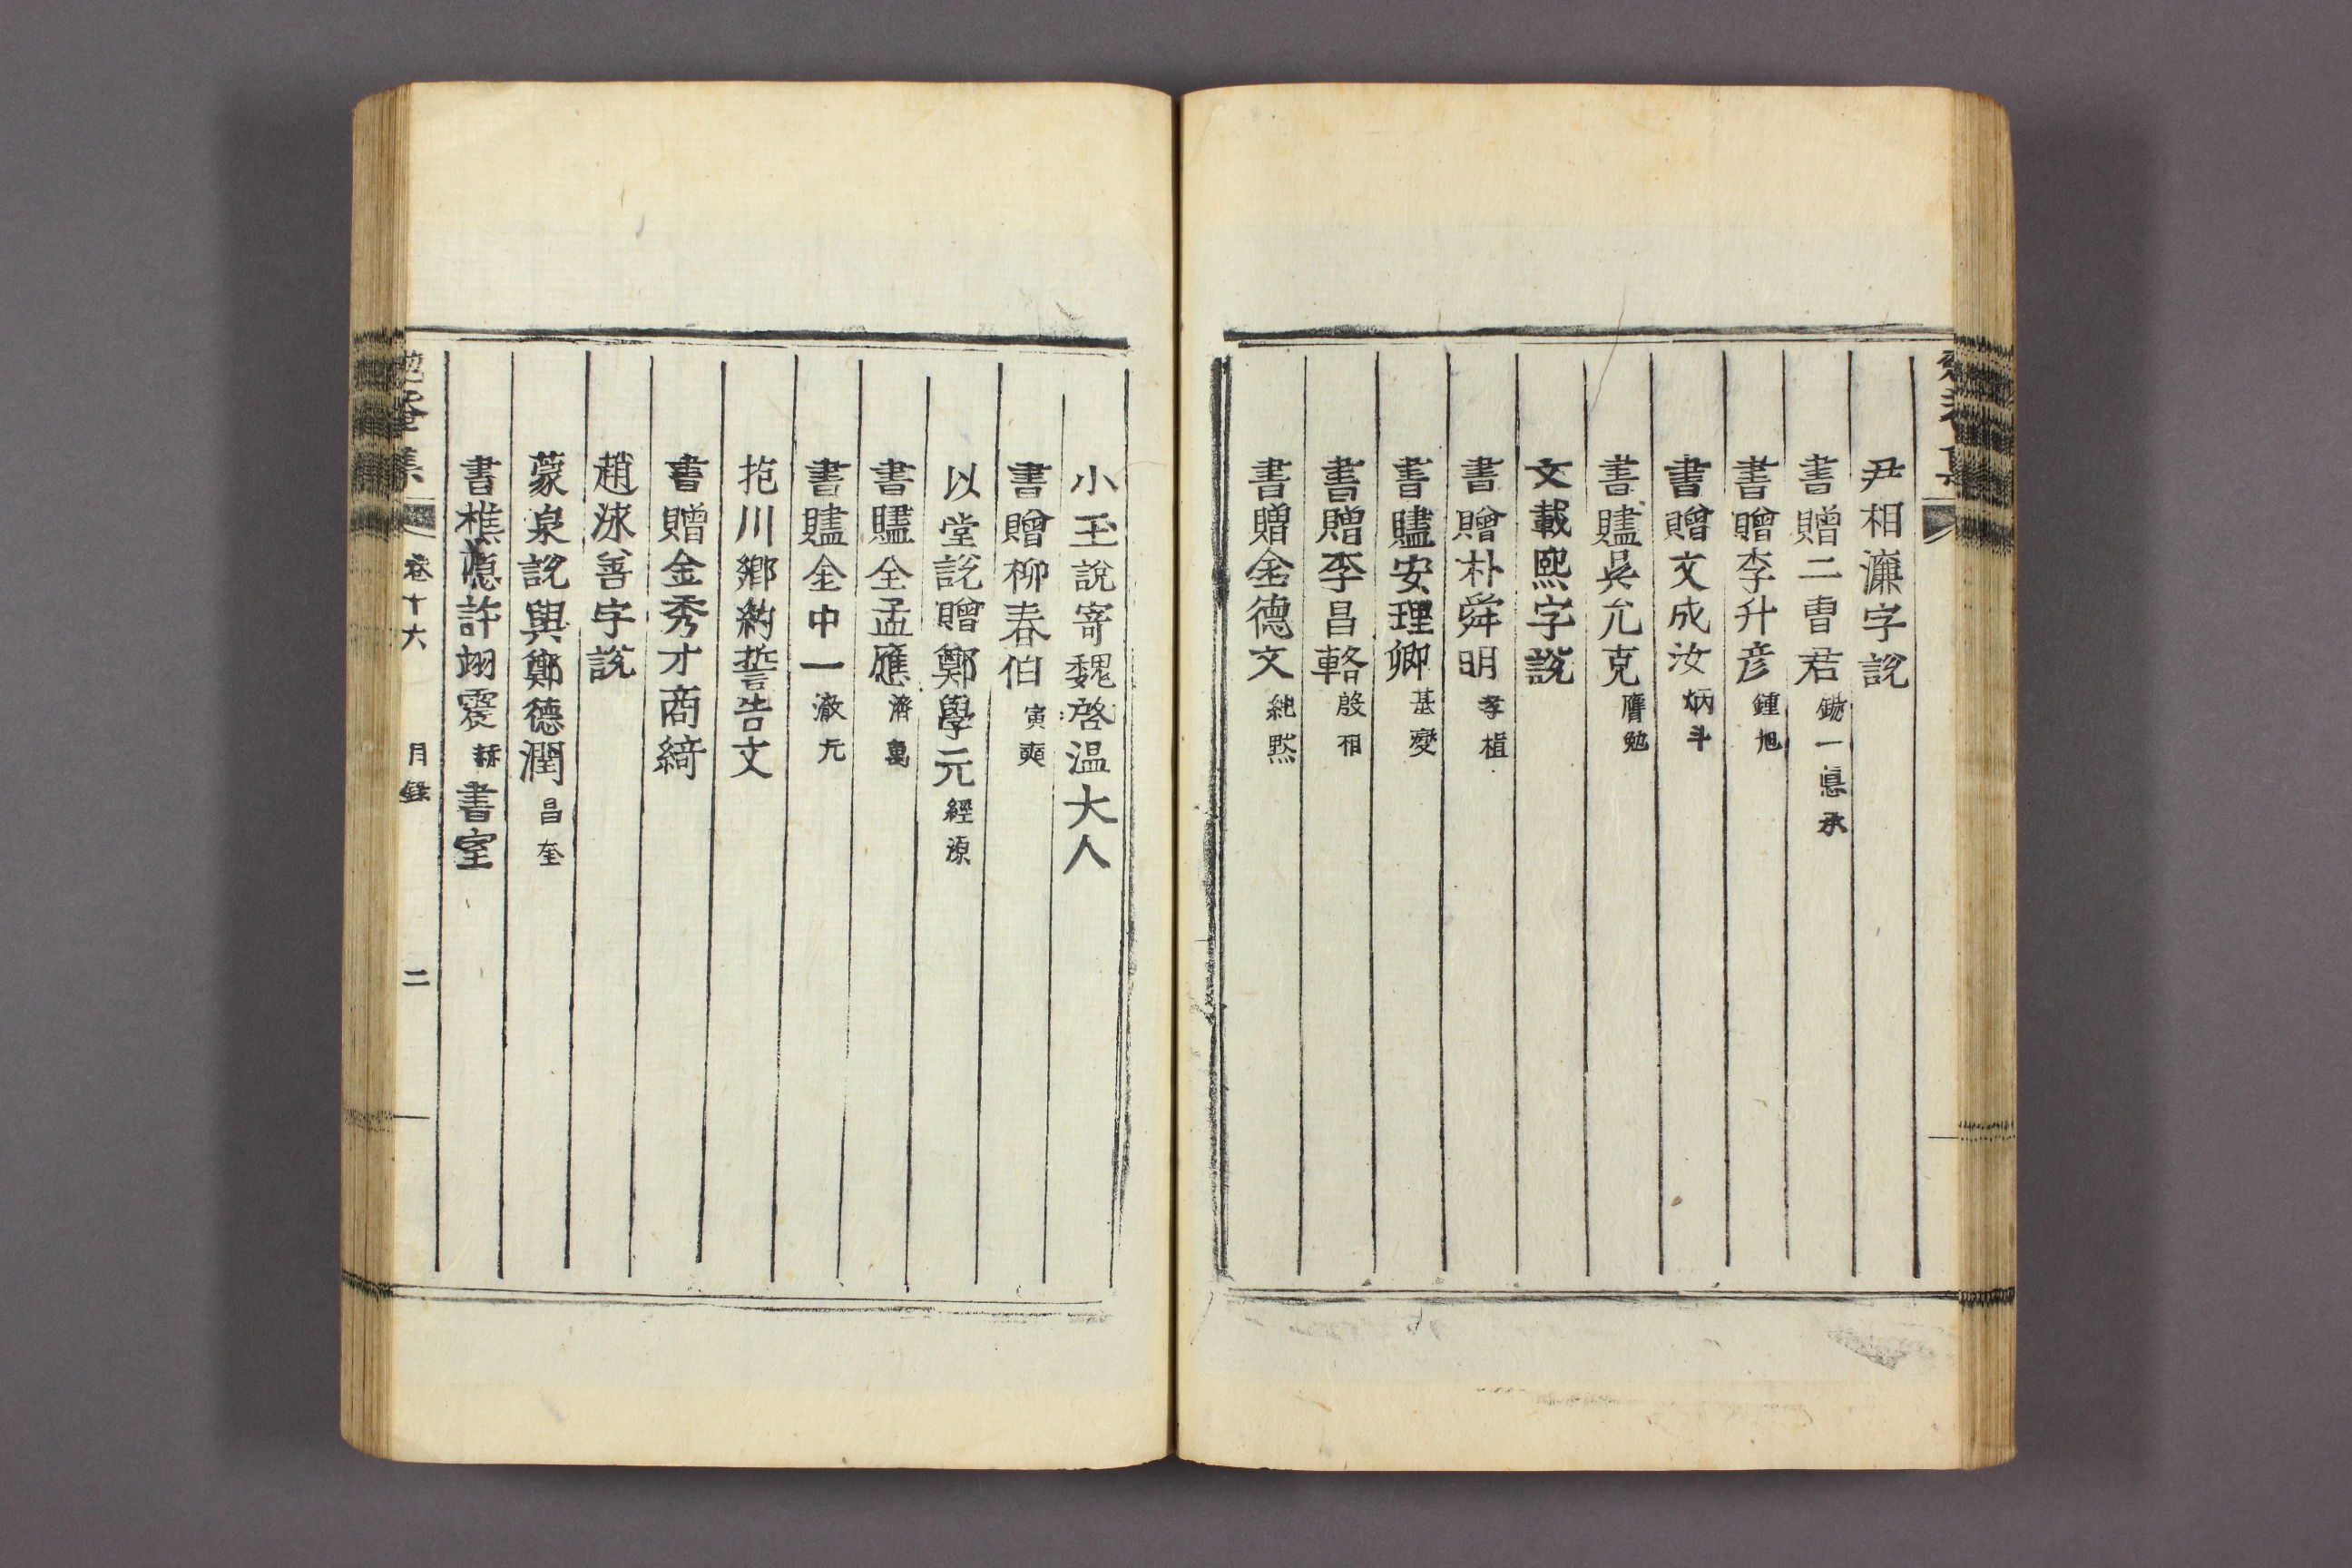 尹相濂字說
書贈二曺君 一 承
書贈李升彦 鍾旭
書贈文成汝 炳斗
書贐吳允克 膺勉
文載熙字說
書贈朴舜明 孝植
書贐安理卿 基燮
書贈李昌輅 殷相
書贈金德文 純默
小玉說寄魏啓溫大人
書贈柳春伯 寅奭
以堂說贈鄭學元 經源
書贐全孟應 濟萬
書贐金中一 澈元
苞川鄕約誓告文
書贈金秀才商綺
趙泳善字說
蒙泉說與鄭德潤 昌奎
書樵隱許翊震 書室
勉菴集 卷十六 目錄 二